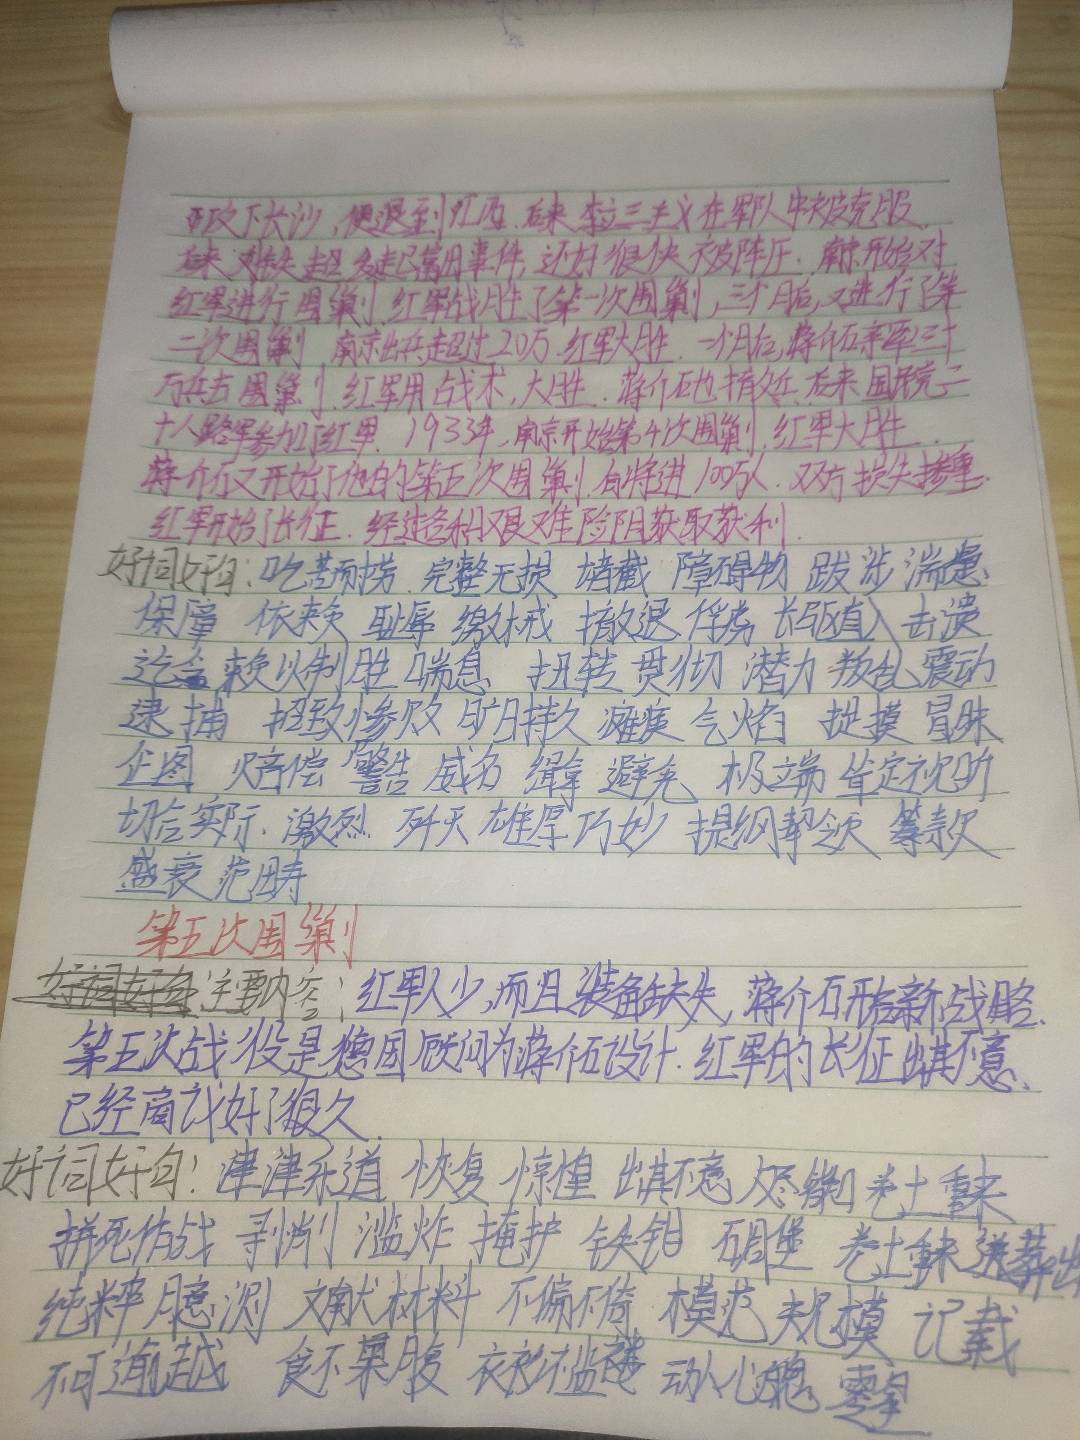 攻下长沙，便退到江西．后来李立三主义在军队中被克服
后来 事件，还好很快被阵压．南京开始对
红军进行围剿．红军战胜了第一次围剿，三个月后，又进行了第
二次围剿 南京出兵超过20万．红军大胜．一个月后，蒋介石亲率三十
万兵去围剿．红军用战术，大胜．蒋介石也 后来国民党二
十八路军参加了红军．1933年，南京开始第4次围剿．红军大胜．
蒋介石又开始了他的第五次围剿．有将进100万人．双方损失惨重．
红军开始了长征．经过各种艰难险阻获取获利．
好词好句：吃苦耐劳 完整无损 堵截 障碍物 跋涉 湍急
保障 依赖 耻辱 缴械 撤退 俘虏 长驱直入 击溃
迄今 赖以制胜 喘息 扭转 贯彻 潜力 叛乱 震动
逮捕 招致惨败 旷日持久 瘫痪 气焰 捉摸 冒昧
企图 赔偿 警告 威名 缉拿 避免 极端 肯定
切合实际．激烈 歼灭 雄厚 巧妙 提纲挈领 筹款
盛衰 范畴
第五次围剿
主要内容：红军人少，而且装备缺失，蒋介石开启新战略．
第五次战役是德国顾问为蒋介石设计．红军的长征出其不意．
已经商议好了很久．
好词好句：津津乐道 恢复 惊惶 出其不意 人尽皆知 卷土重来
拼死作战 剥削 滥炸 掩护 铁钳 碉堡 卷土重来 迸
纯粹 臆测 文献材料 不偏不倚 模范 规模 记载
不可逾越 食不果腹 衣衫褴褛 动人心魄